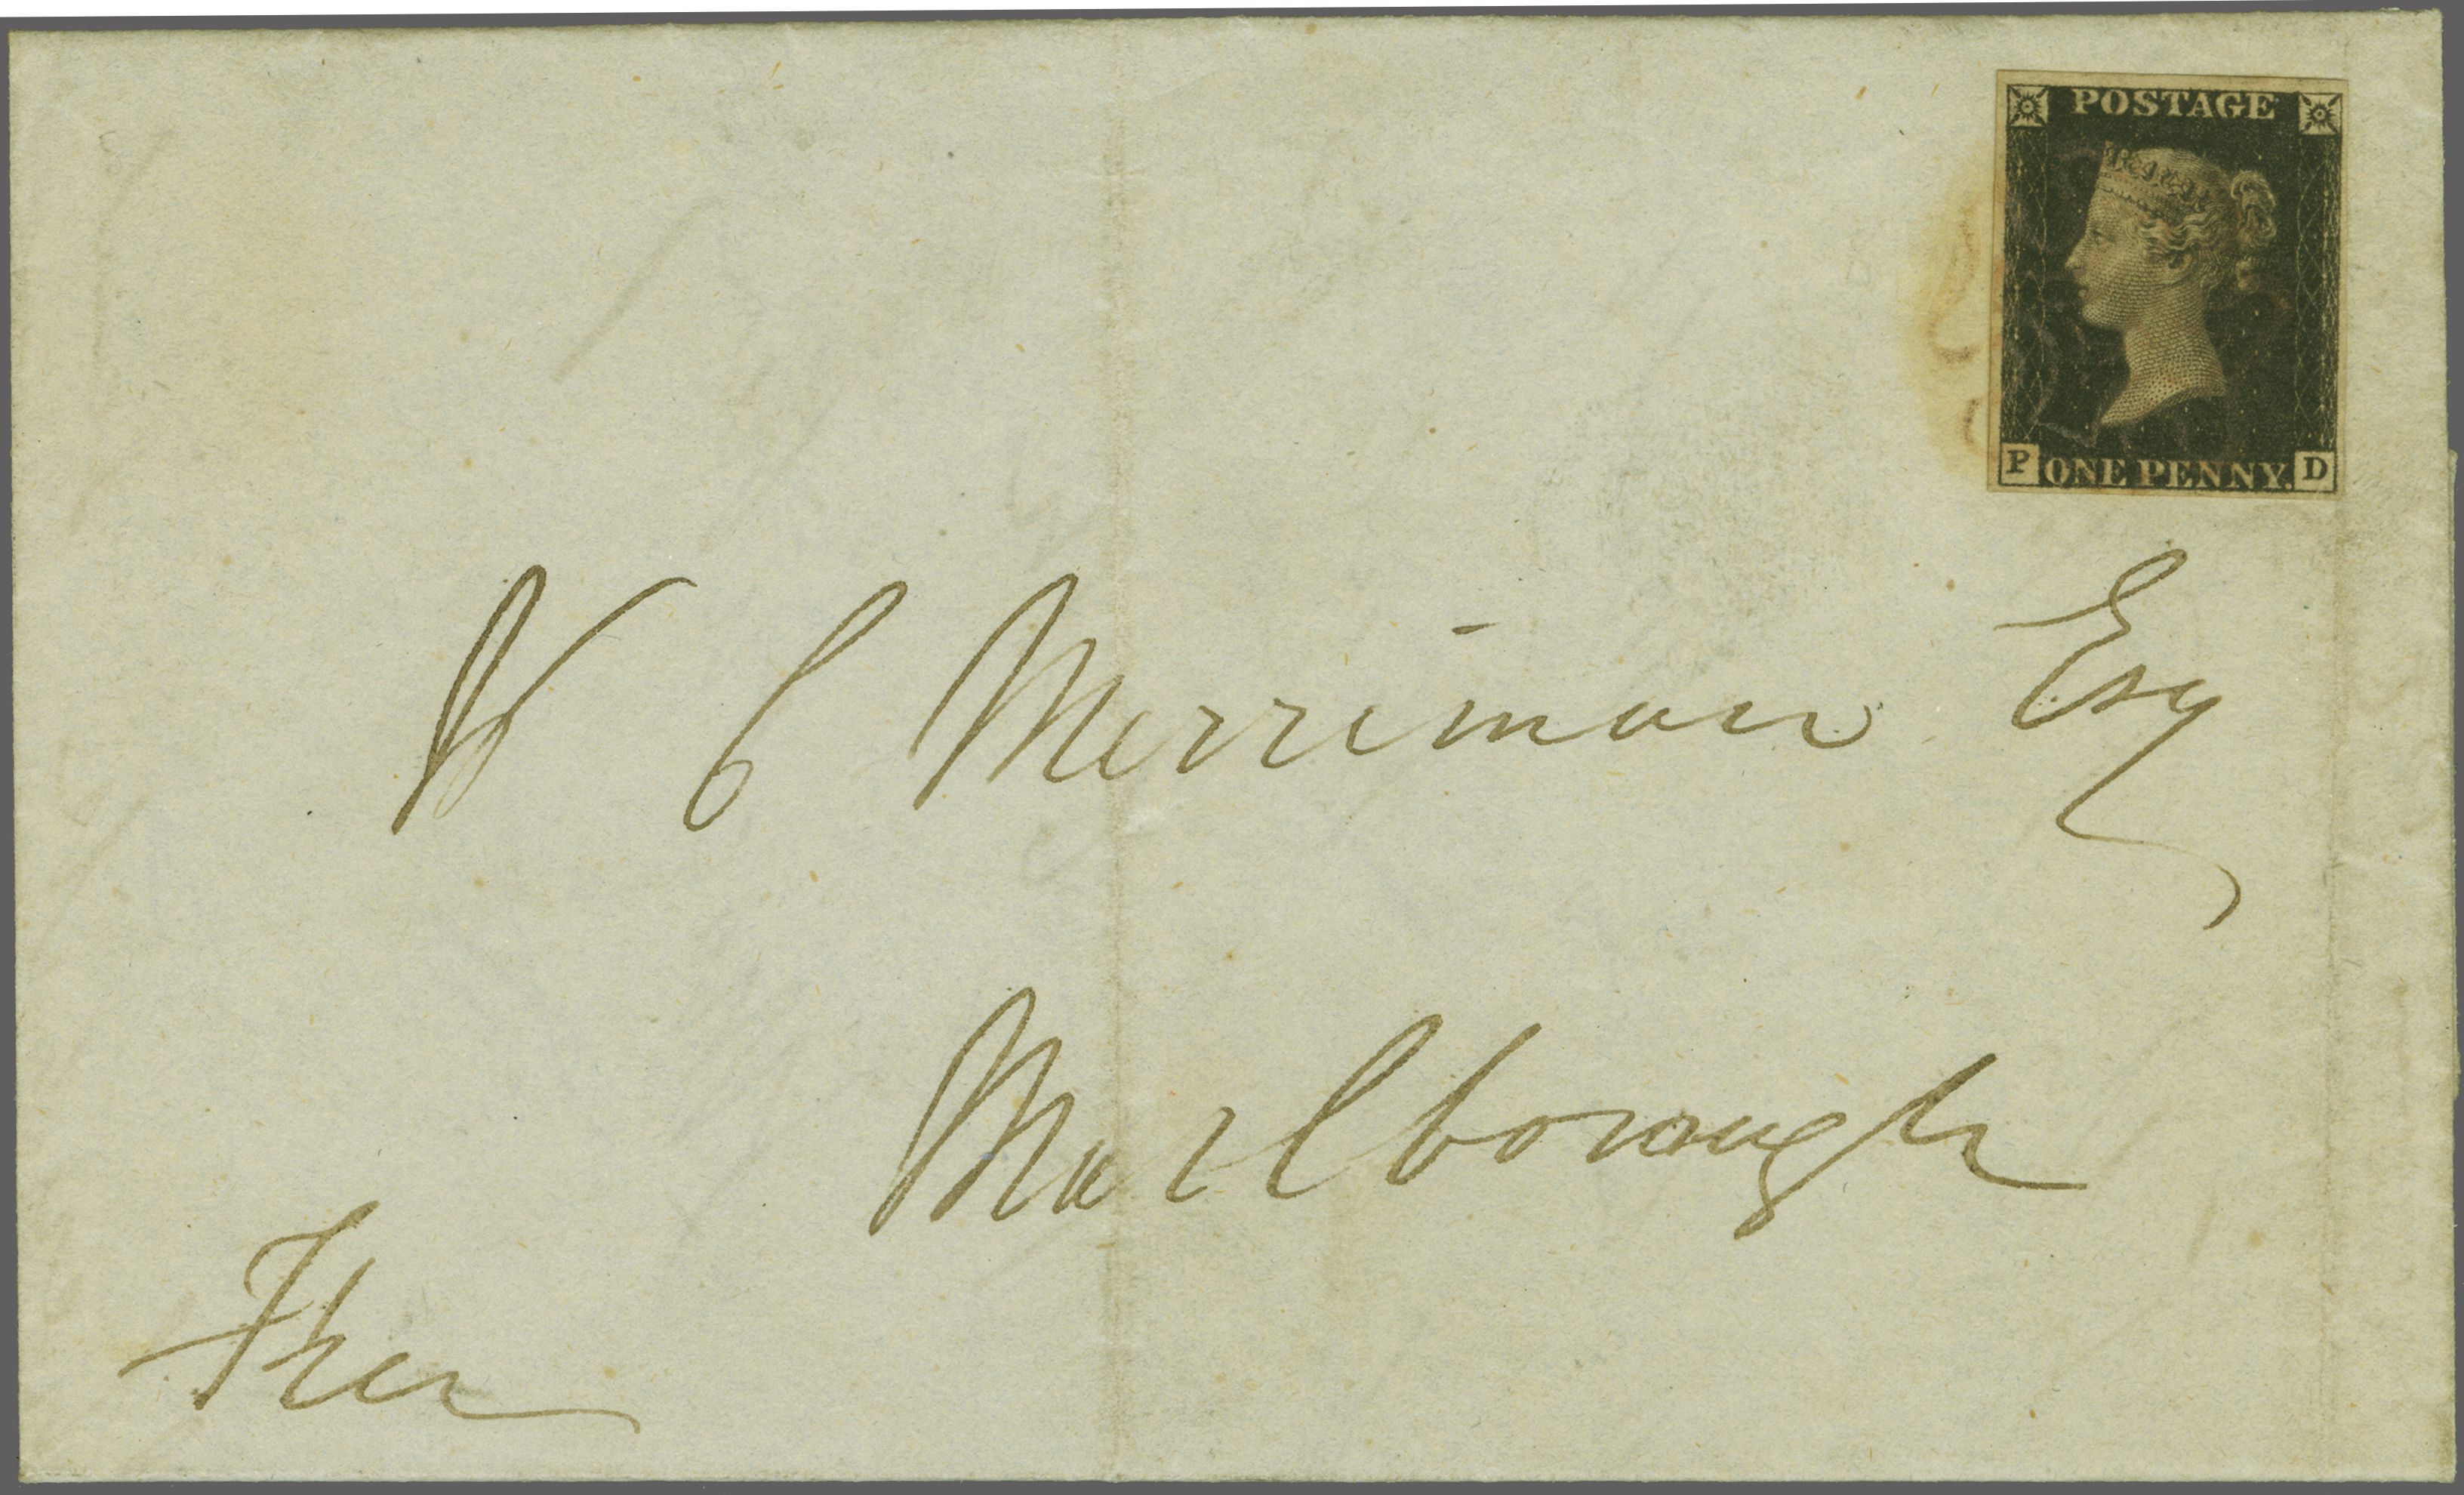 POSTAGE
P ONE PENNY. D
Merriman Esq
Marlborough